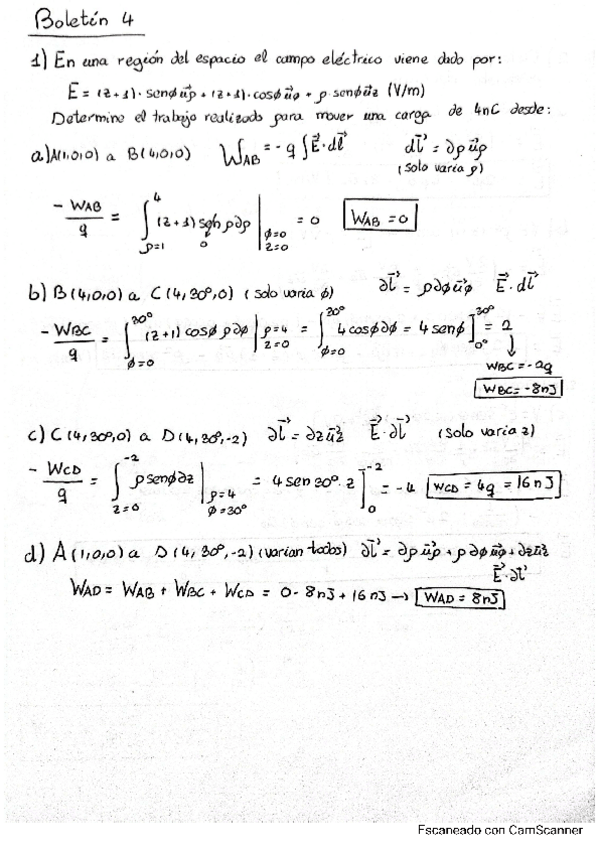 Boletín 4
1) En una región del espacio el campo eléctrico viene dado por:
E = (z+1)·senϕu⃗ρ + (z+1)·cosϕu⃗ϕ + ρ·senϕu⃗z (V/m)
Determine el trabajo realizado para mover una carga de 4nC desde:
a) A(1,0,0) a B(4,0,0) W_AB = -q ∫E⃗·dl⃗ dl⃗ = ∂ρu⃗ρ
(solo varia ρ)
- W_AB/q = ∫_{ρ=1}^{4} (z+1) senϕ ρ∂ρ |_{ϕ=0, z=0} = 0 W_AB = 0
0
b) B(4,0,0) a C(4,30°,0) (solo varia ϕ) ∂l⃗ = ρ∂ϕu⃗ϕ E⃗·dl⃗
- W_BC/q = ∫_{ϕ=0}^{30°} (z+1) cosϕ ρ∂ϕ |_{ρ=4, z=0} = ∫_{ϕ=0}^{30°} 4cosϕ∂ϕ = 4senϕ]_{0°}^{30°} = 2
↓
W_BC = -2q
W_BC = -8nJ
c) C(4,30°,0) a D(4,30°,-2) ∂l⃗ = ∂zu⃗z E⃗·∂l⃗ (solo varia z)
- W_CD/q = ∫_{z=0}^{-2} ρsenϕ∂z |_{ρ=4, ϕ=30°} = 4 sen30°·z]_{0}^{-2} = -4 W_CD = 4q = 16nJ
d) A(1,0,0) a D(4,30°,-2) (varian todos) ∂l⃗ = ∂ρu⃗ρ + ρ∂ϕu⃗ϕ + ∂zu⃗z
E⃗·∂l⃗
W_AD = W_AB + W_BC + W_CD = 0 - 8nJ + 16nJ → W_AD = 8nJ
Escaneado con CamScanner